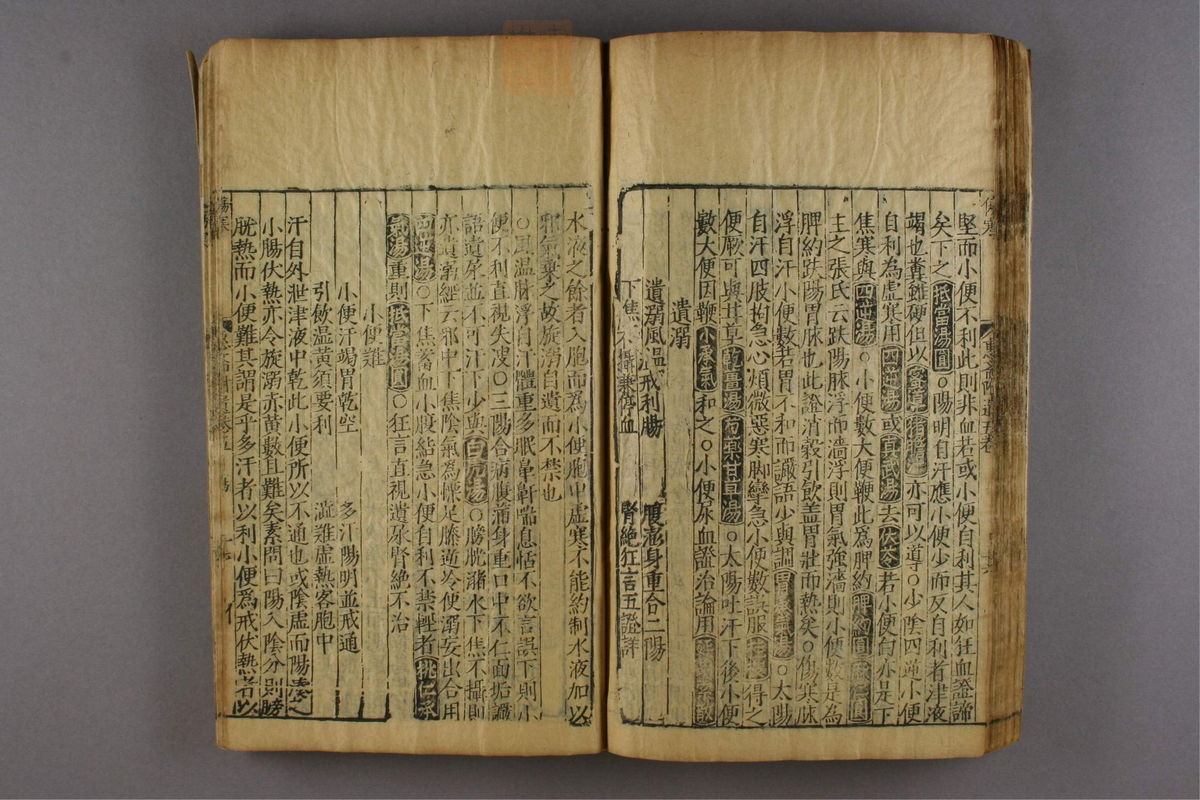 堅而小便不利此則非血若或小便自利其人如狂血證諦
矣下之抵當湯圓○陽明自汗應小便少而反自利者津液
竭也糞雖硬但以蜜導猪膽導亦可以導○少陰四逆小便
自利為虛寒用四逆湯或真武湯去伏苓若小便白亦是下
焦寒與四逆湯○小便數大便鞕此為脾約脾約圓麻仁圓
主之張氏云趺陽脉浮而濇浮則胃氣強濇則小便數是為
脾約趺陽胃脉也此證消穀引飲蓋胃壯而熱矣○傷寒脉
浮自汗小便數若胃不和而讝語少與調胃承氣湯○太陽
自汗四肢拘急心煩微惡寒脚攣急小便數誤服桂枝得之
便厥可與甘草乾薑湯芍藥甘草湯○太陽吐汗下後小便
數大便因鞕小承氣和之○小便尿血證治論用
遺溺
遺溺風温 戒利腸 腹澎身重合二陽
下焦不攝兼停血 腎絶狂言五證詳
水液之餘者入胞而為小便胞中虛寒不能約制水液加以
邪氣乗之故旋溺自遺而不禁也
○風温脉浮自汗體重多眠鼻鼾喘息恬不欲言誤下則小
便不利直視失溲○三陽合病腹滿身重口中不仁面垢讝
語遺尿並不可汗下少與白虎湯○膀胱瀦水下焦不攝則
亦遺溺經云邪中下焦陰氣為慄足膝逆冷便溺妄出合用
四逆湯○下焦蓄血小腹結急小便自利不禁輕者桃仁承
氣湯重則抵當湯圓○狂言直視遺尿腎絶不治
小便難
小便汗竭胃乾空 多汗陽明並戒通
引飲温黄須要利 澁難虛熱客胞中
汗自外泄津液中乾此小便所以不通也或陰虛而陽湊之
小腸伏熱亦令旋溺赤黄數且難矣素問曰陽入陰分則膀
胱熱而小便難其謂是乎多汗者以利小便為戒伏熱者以